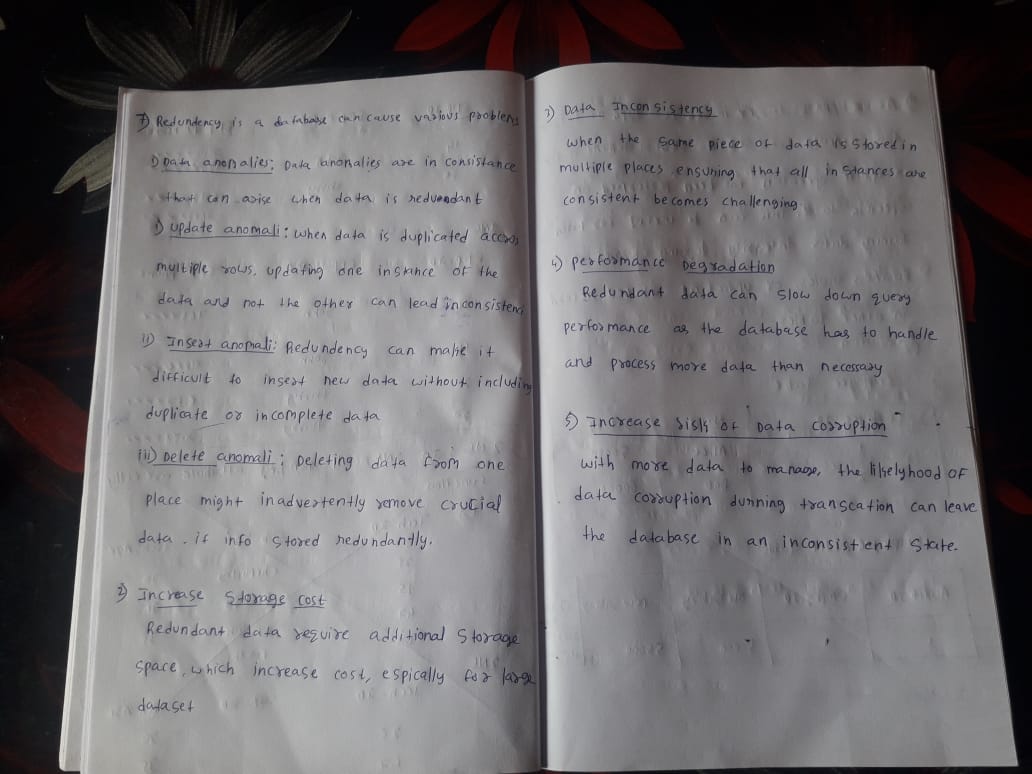 7) Redundency is a database can cause various problems
1) Data anonalies: Data anonalies are in consistance
that can arise when data is reduendant
i) update anomali: when data is duplicated across
multiple rows, updating one instance of the
data and not the other can lead inconsistenci
ii) Insert anomali: Redundency can make it
difficult to insert new data without including
duplicate or incomplete data
iii) Delete anomali: Deleting data from one
place might inadvertently remove crucial
data. if info stored redundantly.
2) Increase Storage cost
Redundant data require additional storage
space, which increase cost, espically for large
dataset
3) Data Inconsistency
when the same piece of data is stored in
multiple places ensuring that all instances are
consistent becomes challenging
4) performance Degradation
Redundant data can slow down query
performance as the database has to handle
and process more data than necessary
5) Increase risk of Data corruption
with more data to manage, the likelyhood of
data corruption dunning transcation can leave
the database in an inconsistent state.